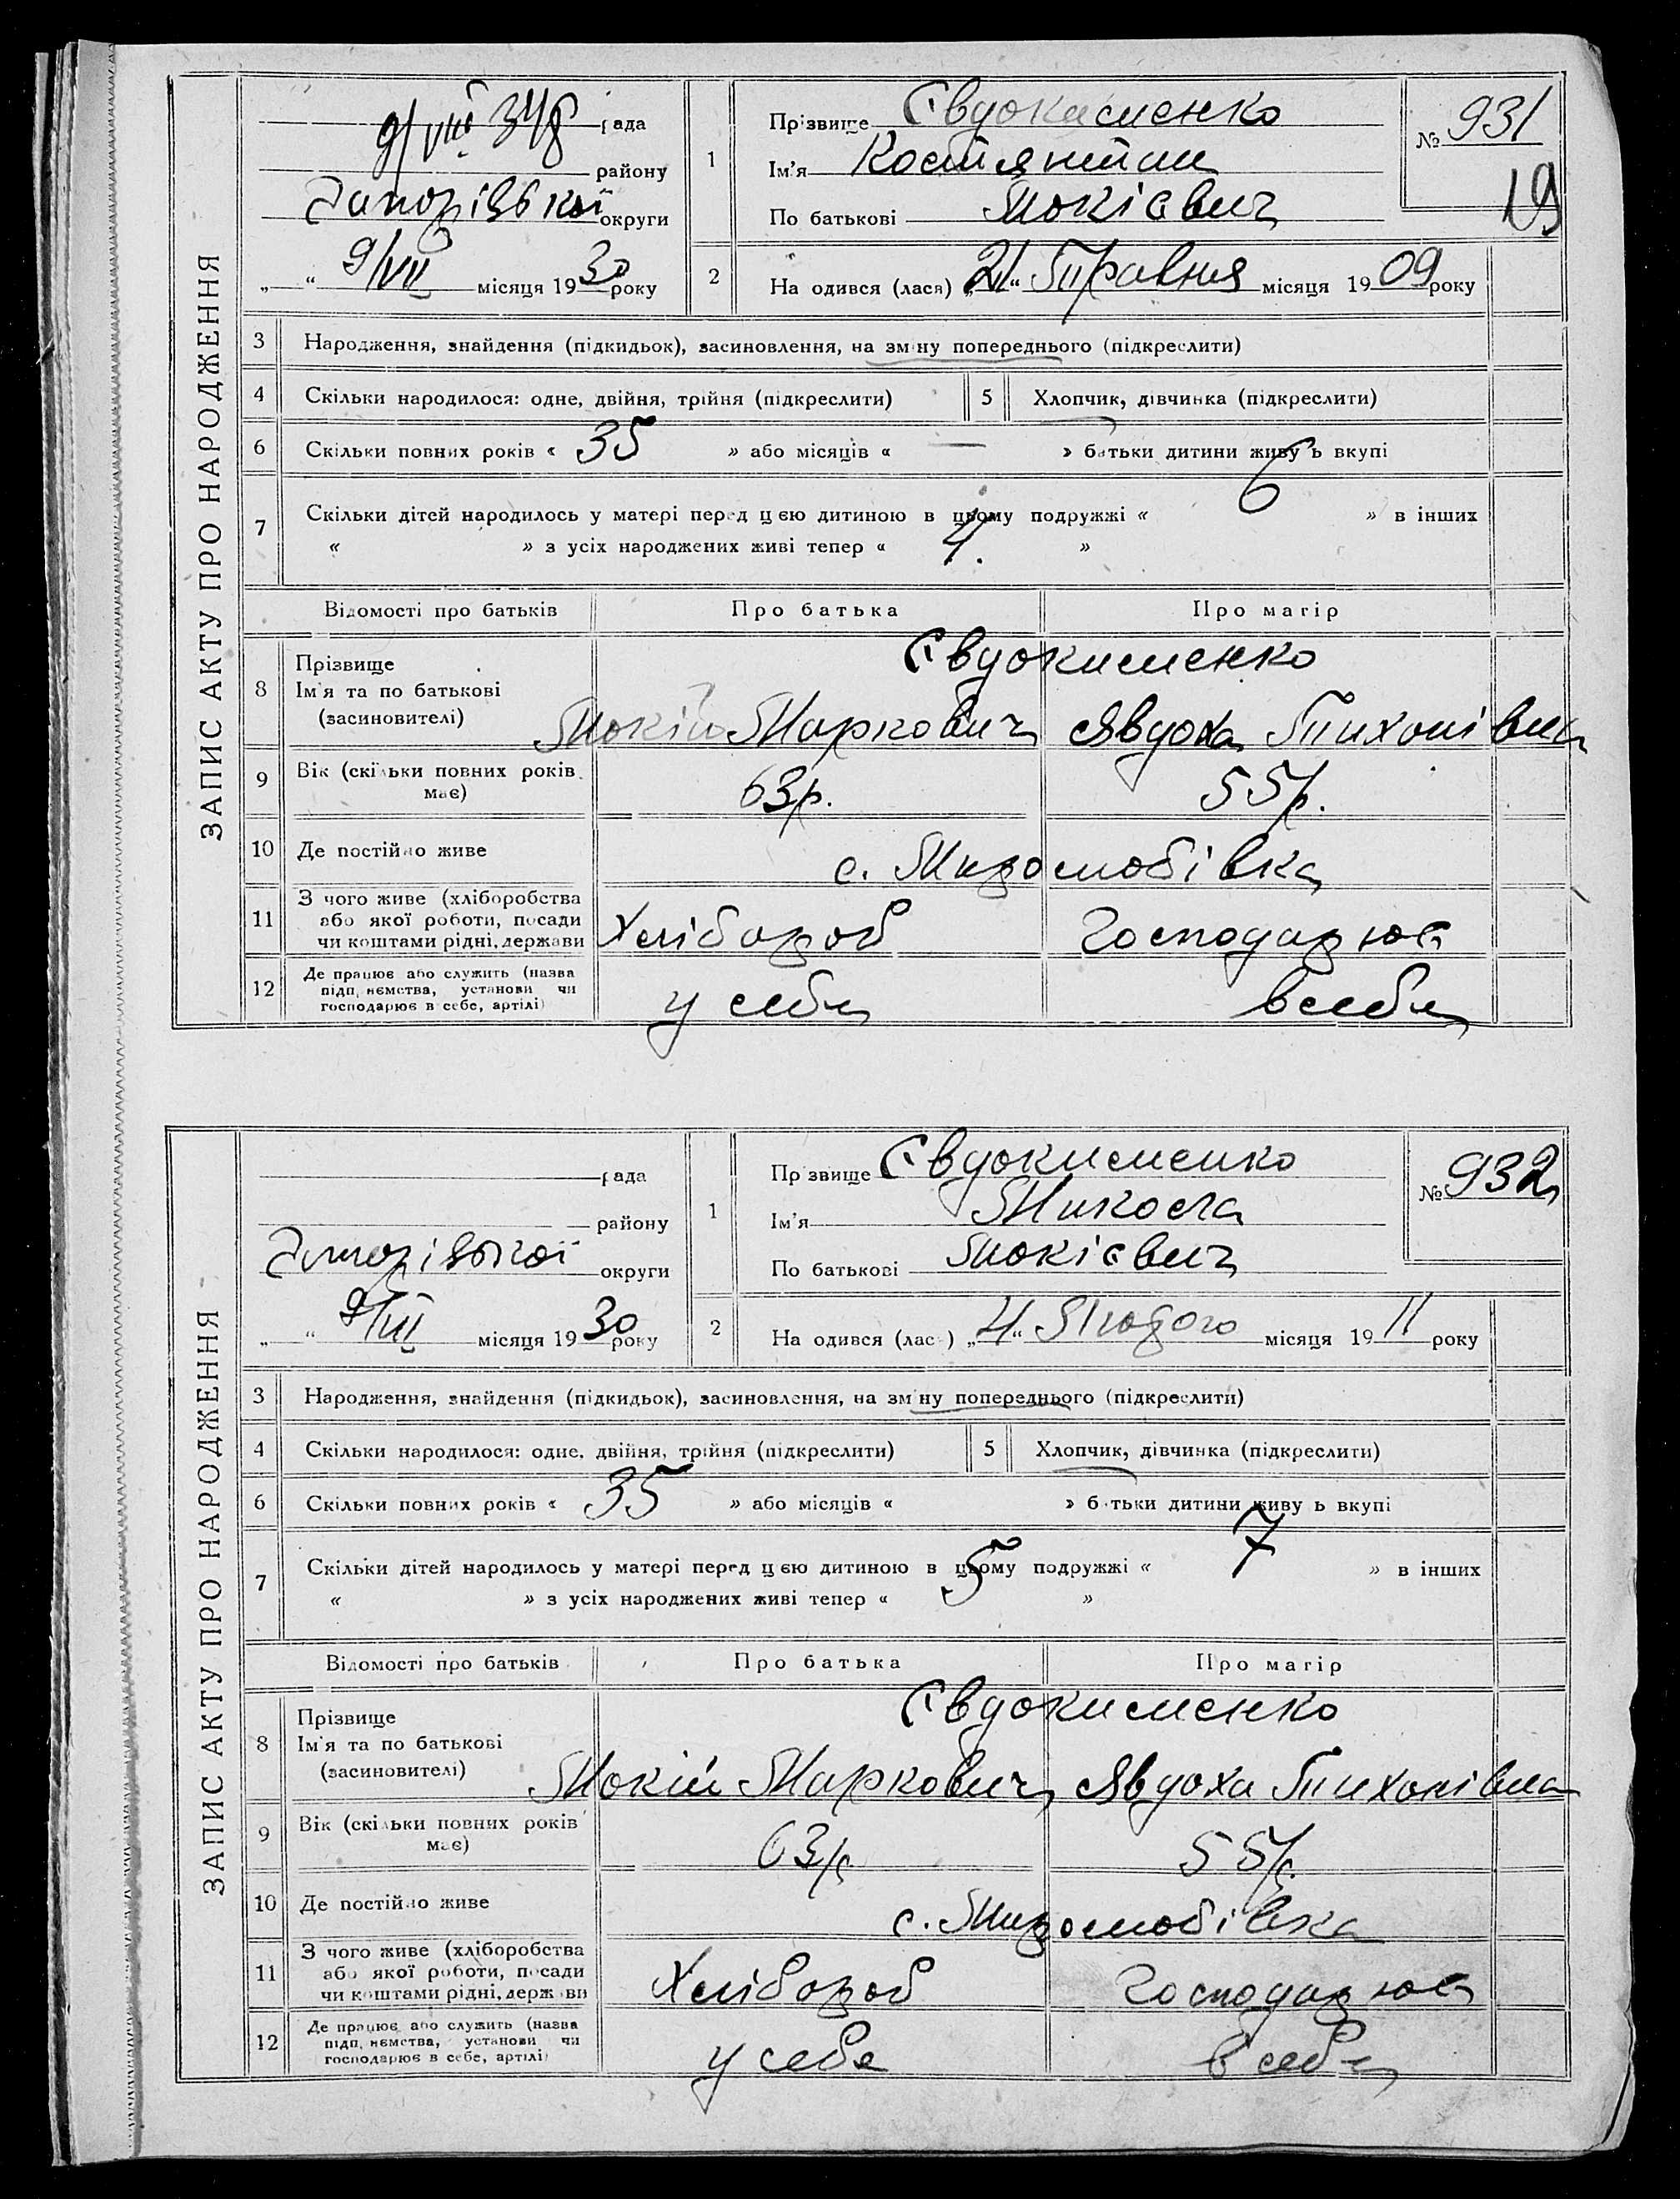 ЗАПИС АКТУ ПРО НАРОДЖЕННЯ
9/VIII 348 рада
району
Запорізької округи
„ “ 9/VII місяця 1930 року
1 Прізвище Євдокименко
Ім'я Костянтин
По батькові Мокієвич
№ 931
19
2 На одився (лася) „21“ Травня місяця 1909 року
3 Народження, знайдення (підкидьок), засиновлення, на зміну попереднього (підкреслити)
4 Скільки народилося: одне, двійня, трійня (підкреслити) 5 Хлопчик, дівчинка (підкреслити)
6 Скільки повних років « 35 » або місяців « — » батьки дитини живу ь вкупі
7 Скільки дітей народилось у матері перед цею дитиною в цьому подружжі « 6 » в інших
« » з усіх народжених живі тепер « 4. »
Відомості про батьків Про батька Про матір
8 Прізвище Євдокименко
Ім'я та по батькові
(засиновителі) Мокій Маркович Явдоха Тихонівна
9 Вік (скільки повних років має) 63р. 55р.
10 Де постійно живе с. Миролюбівка
11 З чого живе (хліборобства
або якої роботи, посади
чи коштами рідні, держави Хлібороб Господарює
12 Де працює або служить (назва
підп, нємства, установи чи
господарює в себе, артілі) у себе в себе
ЗАПИС АКТУ ПРО НАРОДЖЕННЯ
рада
району
Запорізької округи
„ “ 9/VII місяця 1930 року
1 Пр звище Євдокименко
Ім'я Микола
По батькові Мокієвич
№ 932
2 На одився (лас ) „4“ Лютого місяця 1911 року
3 Народження, знайдення (підкидьок), засиновлення, на зм ну попереднього (підкреслити)
4 Скільки народилося: одне, двійня, трійня (підкреслити) 5 Хлопчик, дівчинка (підкреслити)
6 Скільки повних років « 35 » або місяців « » б тьки дитини живу ь вкупі
7 Скільки дітей народилось у матері перед цею дитиною в цьому подружжі « 7 » в інших
« » з усіх народжених живі тепер « 5 »
Відомості про батьків Про батька Про матір
8 Прізвище Євдокименко
Ім'я та по батькові
(засиновителі) Мокій Маркович Явдоха Тихонівна
9 Вік (скільки повних років має) 63р 55р.
10 Де постійно живе с. Миролюбівка
11 З чого живе (хліборобства
або якої роботи, посади
чи коштами рідні, держ ви Хлібороб Господарює
12 Де працює або служить (назва
підп, нємства, установи чи
господарює в себе, артілі) у себе в себе